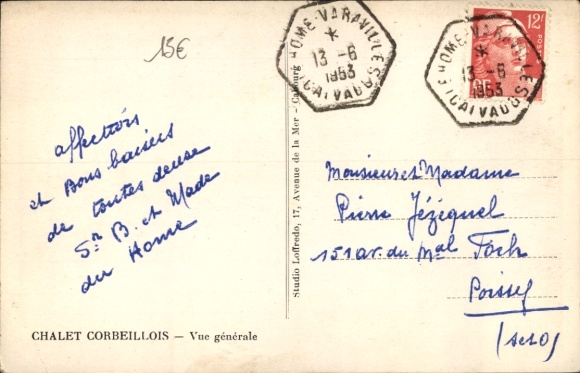 15€
HOME-VARAVILLE SAT
*
13 -6
1953
(CALVADOS)
HOME-VARAVILLE SAT
*
13 -6
1953
(CALVADOS)
12F
POSTES
RF
affections
et Bons baisers
de toutes deuse
Sr B. et Made
du Home
Studio Loffredo, 17, Avenue de la Mer - Cabourg
Monsieur et Madame
Pierre Jézéquel
151 av. du Mal Foch
Poissy
(S et O)
CHALET CORBEILLOIS — Vue générale